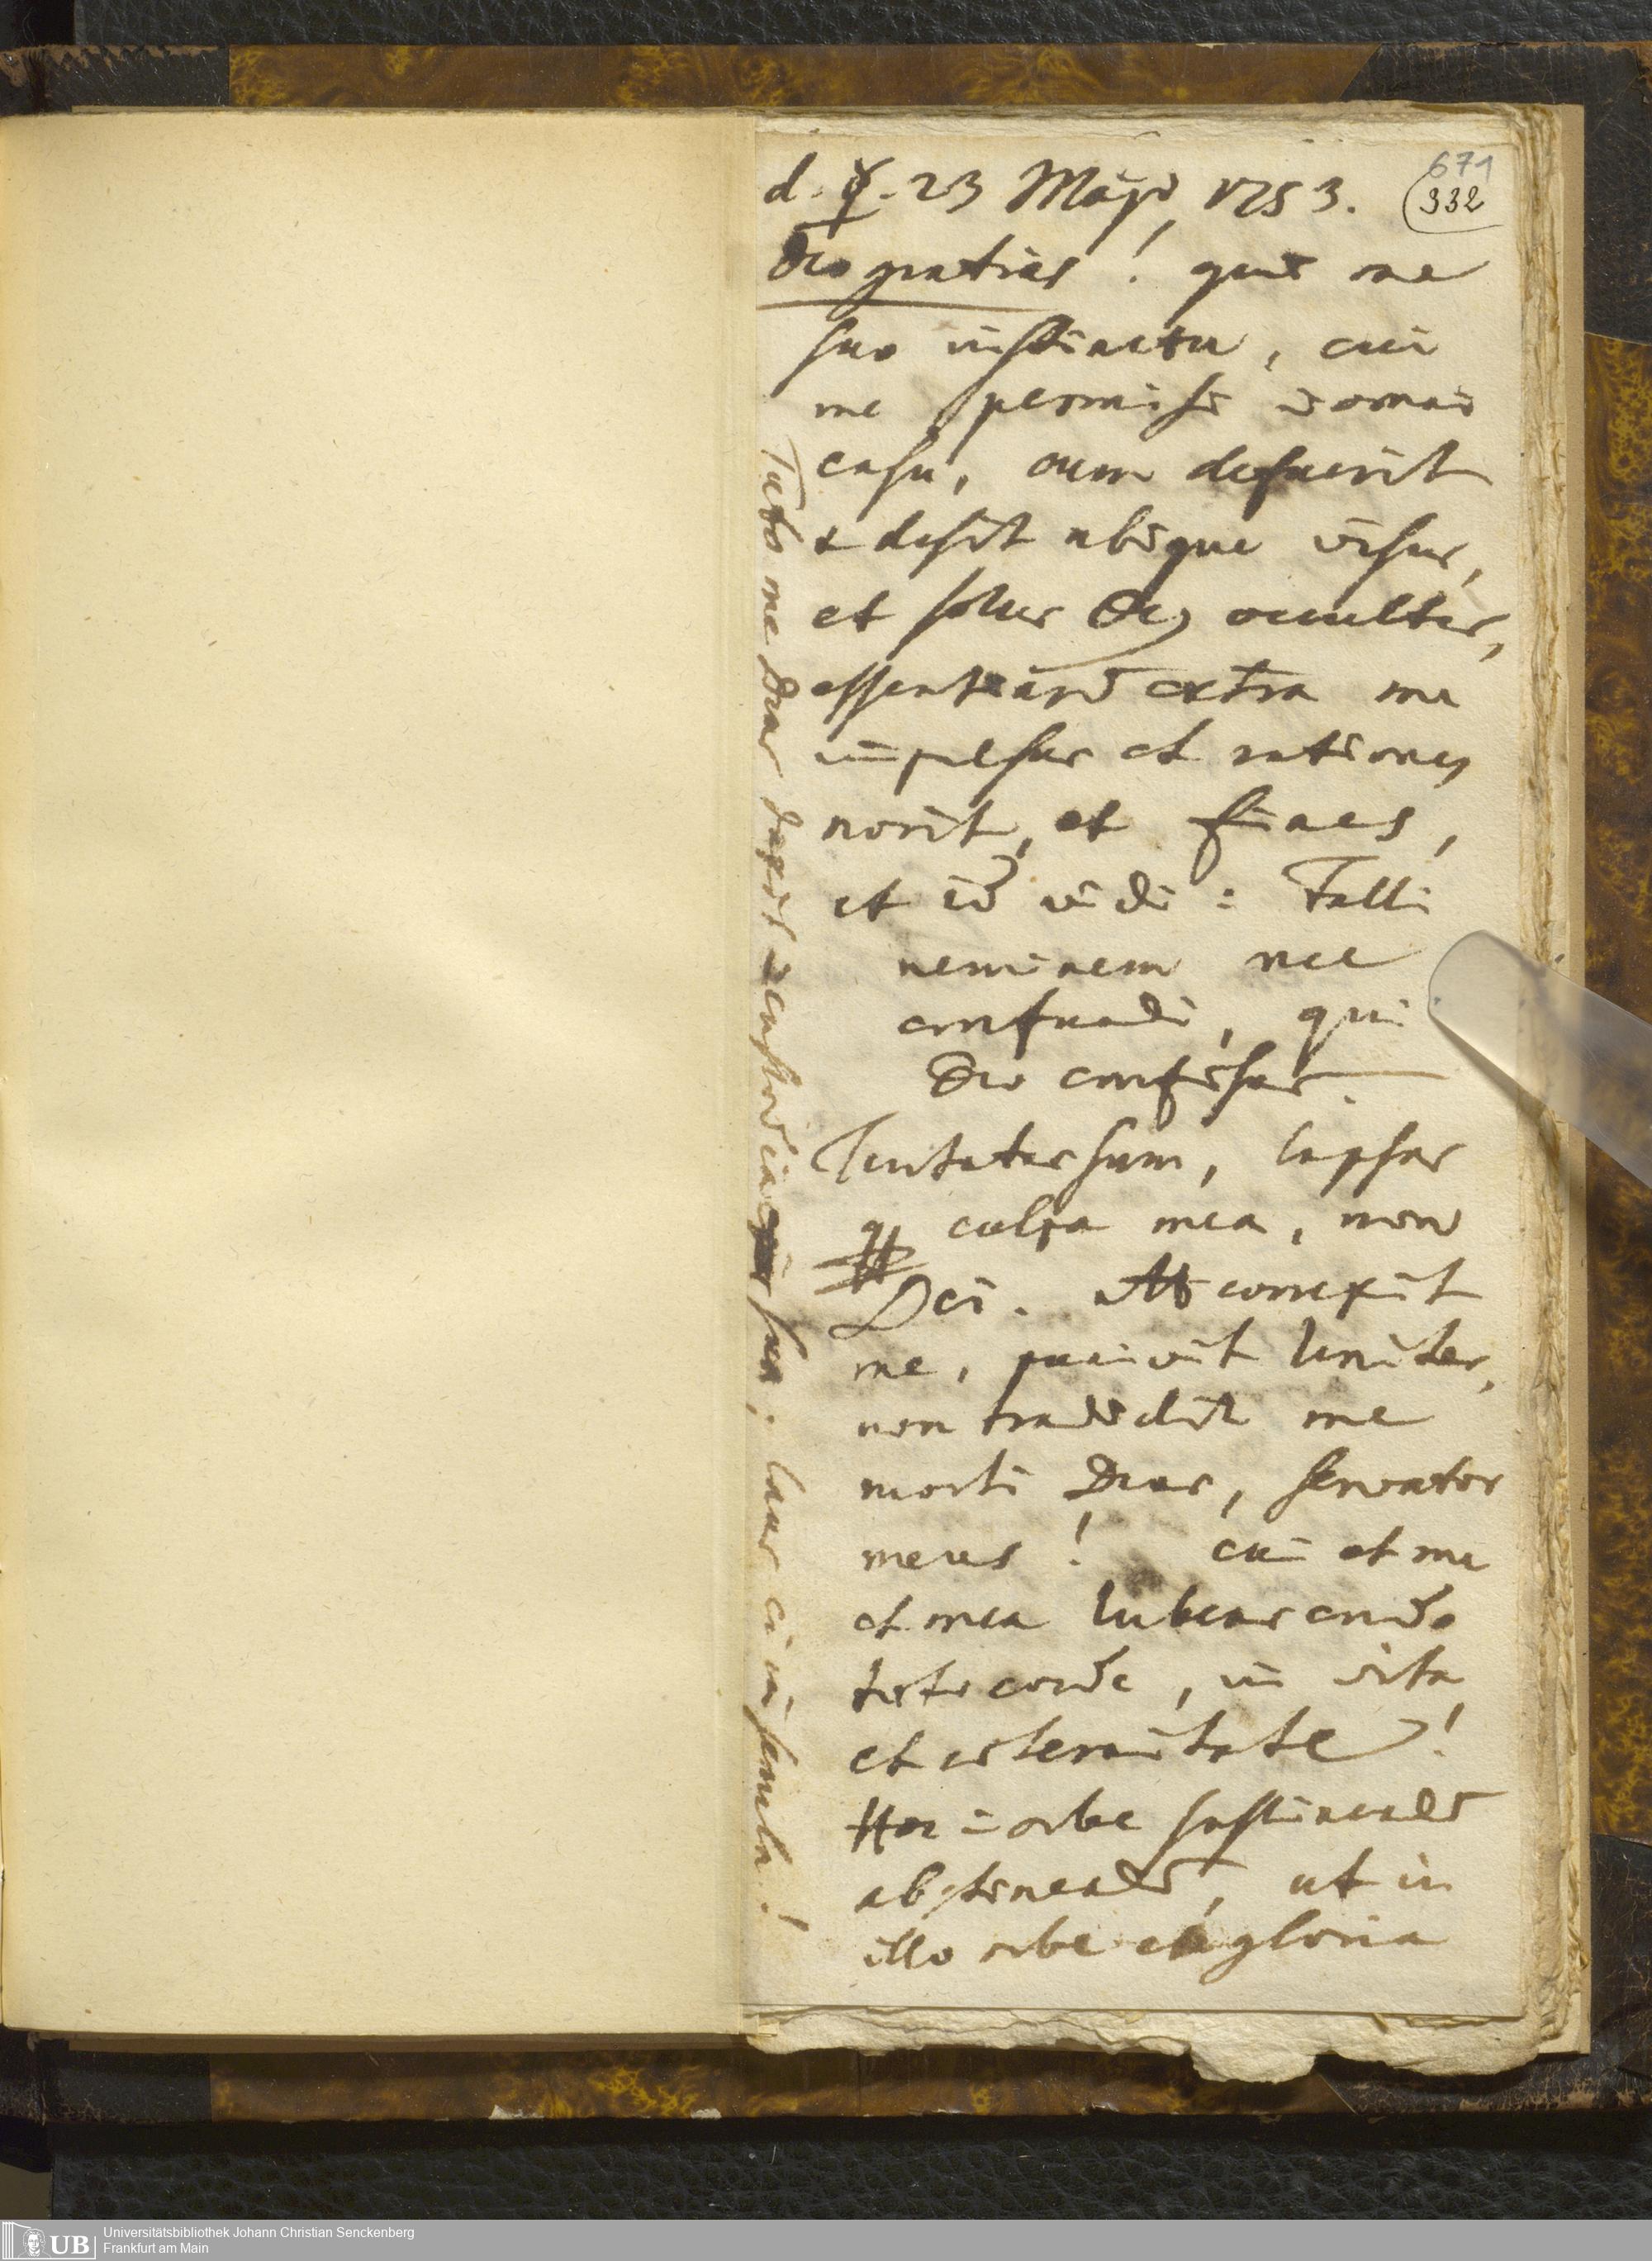 671
(332
d. ☿. 23 Maji 1753.
Deo gratias! qui me
suo instinctu, cui
me permisi in omni
casu, cum defuerit
& desit ubique visus,
et solus Deus occultus,
essentiam extra me
impulsus et rationes
norit, et fines,
et id vidi: Falli
neminem nec
confundi, qui
Deo confisus.
Tentatus sum, lapsus
culpa mea, non
Dei. At correxit
me, punivit leniter,
non tradidit me
morti Deus, servator
meus! cui et me
et mea lubens credo
toto corde, in vita
et aeternitate!
Hoc in orbe sustinendum
abstinendum, ut in
illo orbe in gloria
Tuto me Deus custodia sua; laus ei in secula!
Universitätsbibliothek Johann Christian Senckenberg
Frankfurt am Main
UB